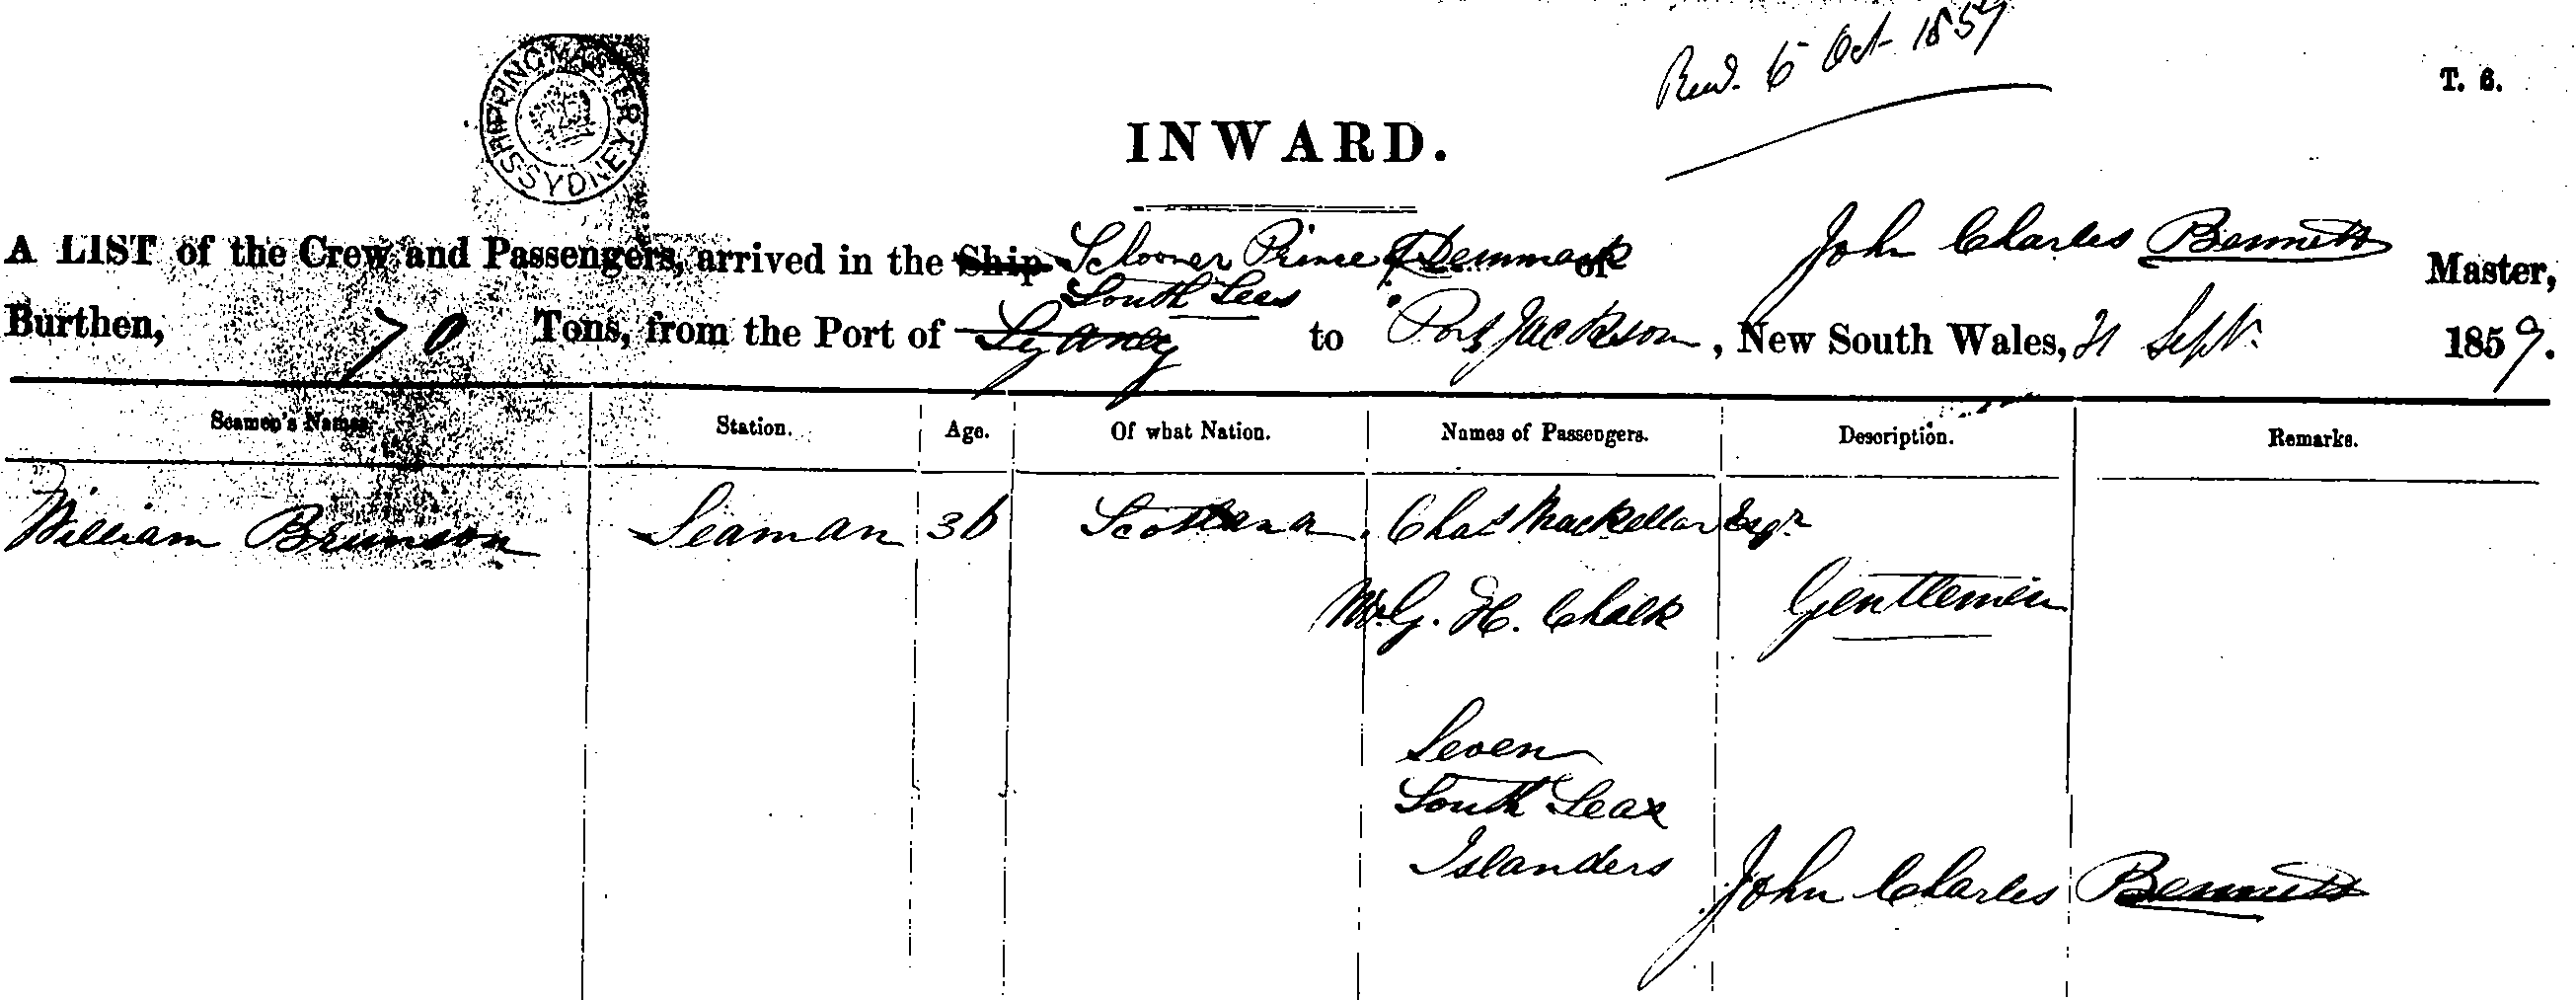 Recd. 6 Oct 1859
T. 6.
SHIPPING MASTER SYDNEY
INWARD.
A LIST of the Crew and Passengers, arrived in the Ship Schooner Prince of Denmark of John Charles Bennett Master,
South Seas
Burthen, 70 Tons, from the Port of Sydney to Port Jackson, New South Wales, 21 Sept. 1859.
Seamen's Names. Station. Age. Of what Nation. Names of Passengers. Description. Remarks.
William Brunson Seaman 36 Scotland. Chas Mackellar Esqr
Mr. G. H. Chalk Gentlemen
Seven
South Seas
Islanders
John Charles Bennett